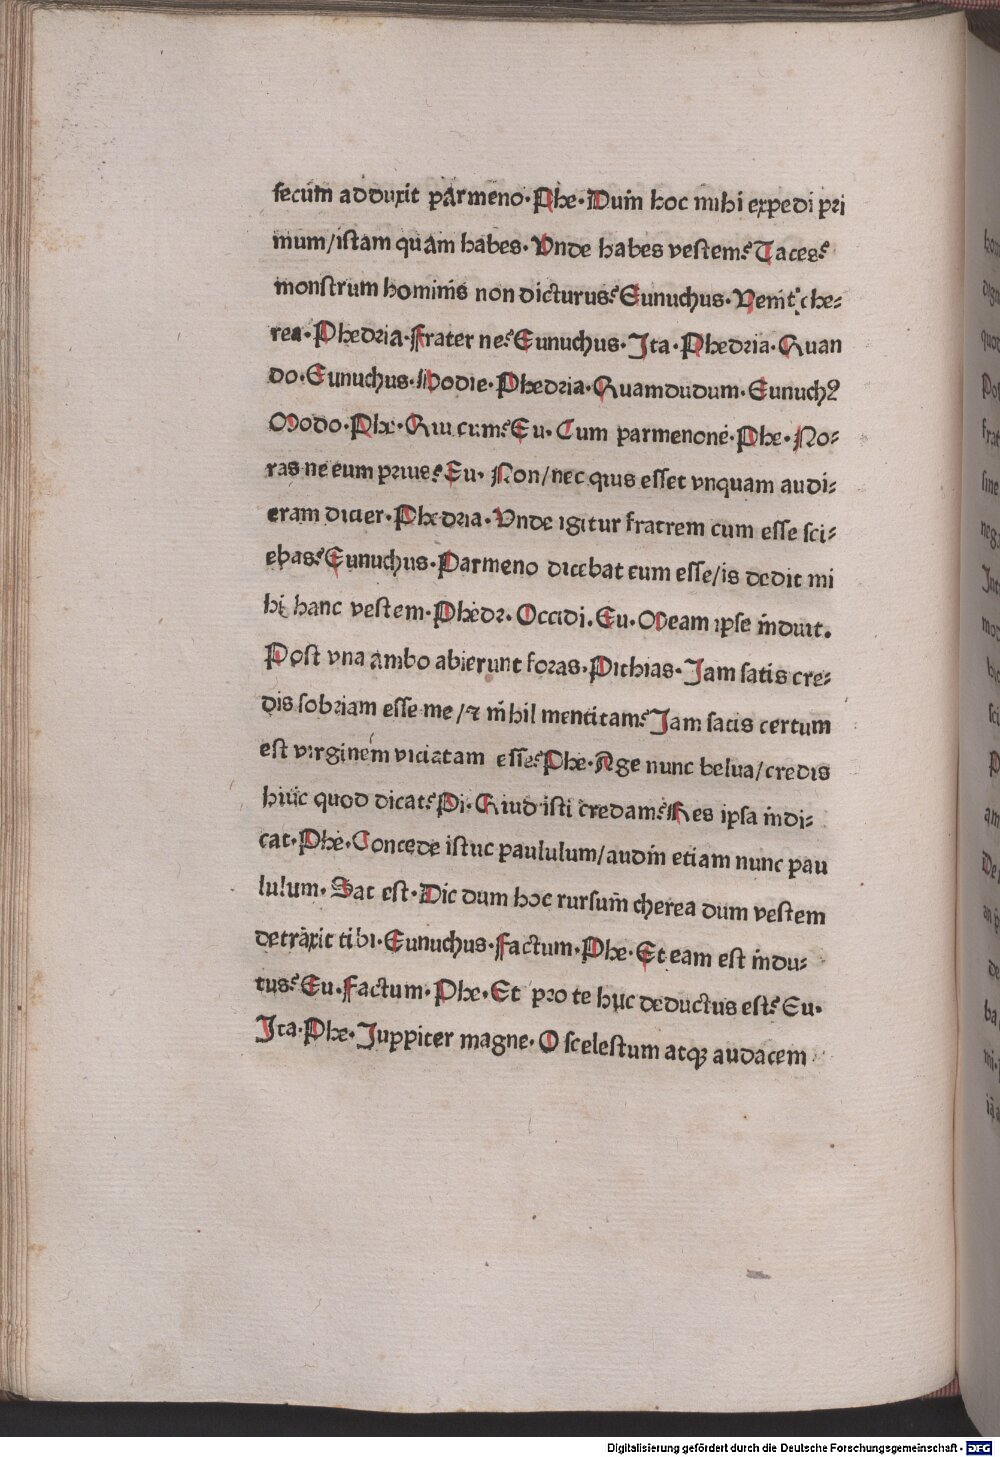 ſecum adduxit parmeno·Phe·Dum hoc mihi expedi pri
mum/iſtam quam habes·Vnde habes veſtem?Taces?
monſtrum hominis non dicturus?Eunuchus·Venit che⸗
rea·Phedria·Frater ne?Eunuchus·Ita·Phedria·Quan
do·Eunuchus·Hodie·Phedria·Quamdudum·Eunuchꝰ
Modo·Phe·Qui cum?Eu·Cum parmenone·Phe·No⸗
ras ne eum prius?Eu·Non/nec quis eſſet vnquam audi⸗
eram dicier·Phedria·Vnde igitur fratrem cum eſſe ſci⸗
ebas?Eunuchus·Parmeno dicebat eum eſſe/is dedit mi
hi hanc veſtem·Phedr·Occidi·Eu·Meam ipſe induit·
Poſt vna ambo abierunt foras·Pithias·Jam ſatis cre⸗
dis ſobriam eſſe me/⁊ nihil mentitam?Jam ſatis certum
eſt virginem viciatam eſſe?Phe·Age nunc belua/credis
huic quod dicat?Pi·Quid iſti credam?Res ipſa indi⸗
cat·Phe·Concede iſtuc paululum/audin etiam nunc pau
lulum·Sat eſt·Dic dum hoc rurſum cherea dum veſtem
detraxit tibi·Eunuchus·Factum·Phe·Et eam eſt indu⸗
tus?Eu·Factum·Phe·Et pro te huc deductus eſt?Eu·
Ita·Phe·Juppiter magne·O ſceleſtum atqꝫ audacem
Digitalisierung gefördert durch die Deutsche Forschungsgemeinschaft - DFG